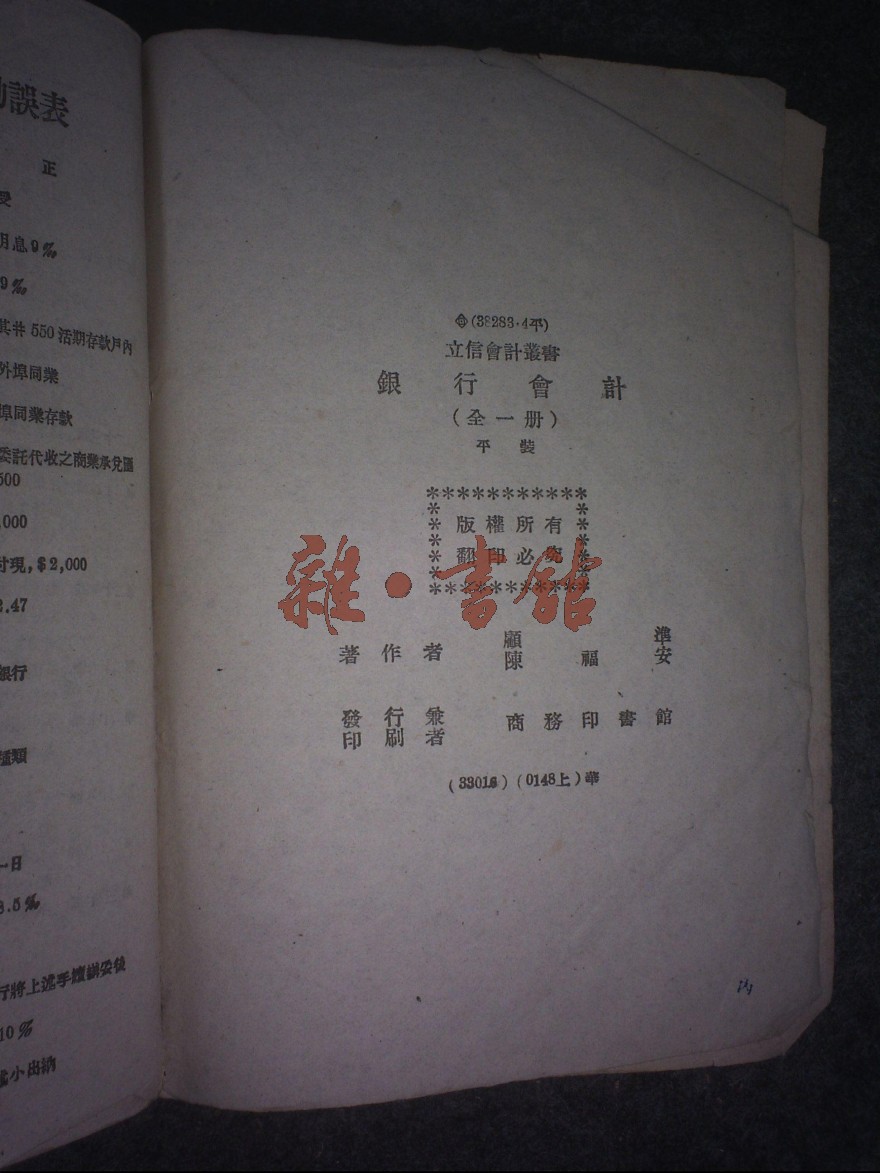 勘誤表
正
受
月息9‰
9‰
其廾 550 活期存款戶內
外埠同業
埠同業存款
委託代收之商業承兌匯
500
,000
付現,$2,000
2.47
銀行
種類
一日
3.5‰
行將上述手續辦妥後
10‰
小出納
(38283·4平)
立信會計叢書
銀行會計
(全一册)
平裝
版權所有
翻印必究
雜·書館
著作者 顧準
陳福安
發行兼
印刷者 商務印書館
(33016)(0148上)華